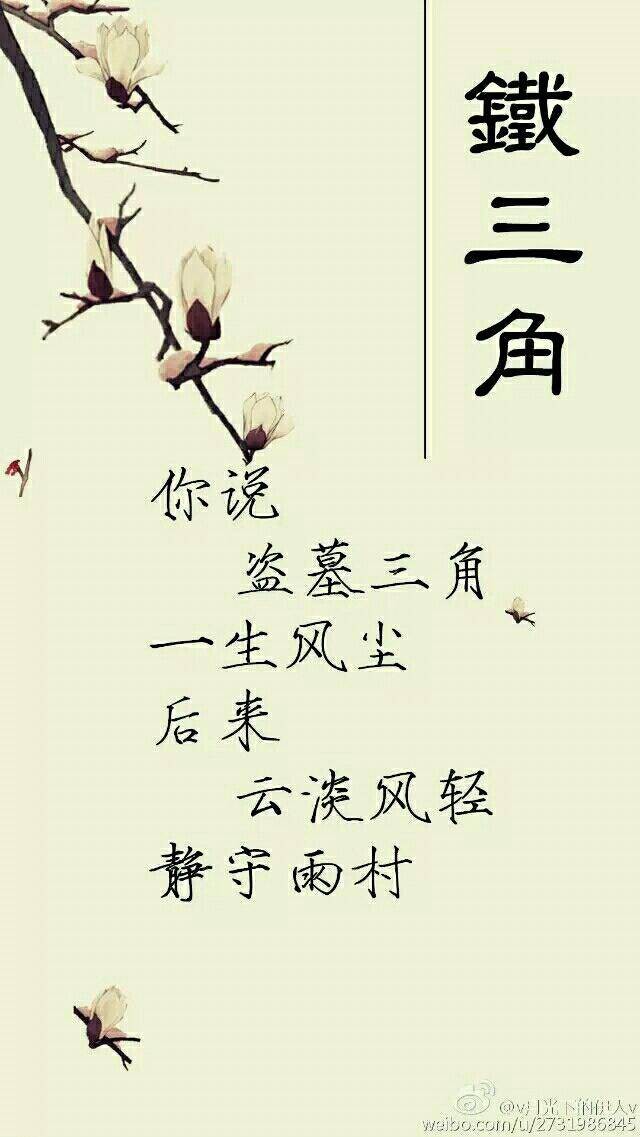 鐵三角
你说
盗墓三角
一生风尘
后来
云淡风轻
静守雨村
@v月光下的伊人v
weibo.com/u/2731986845